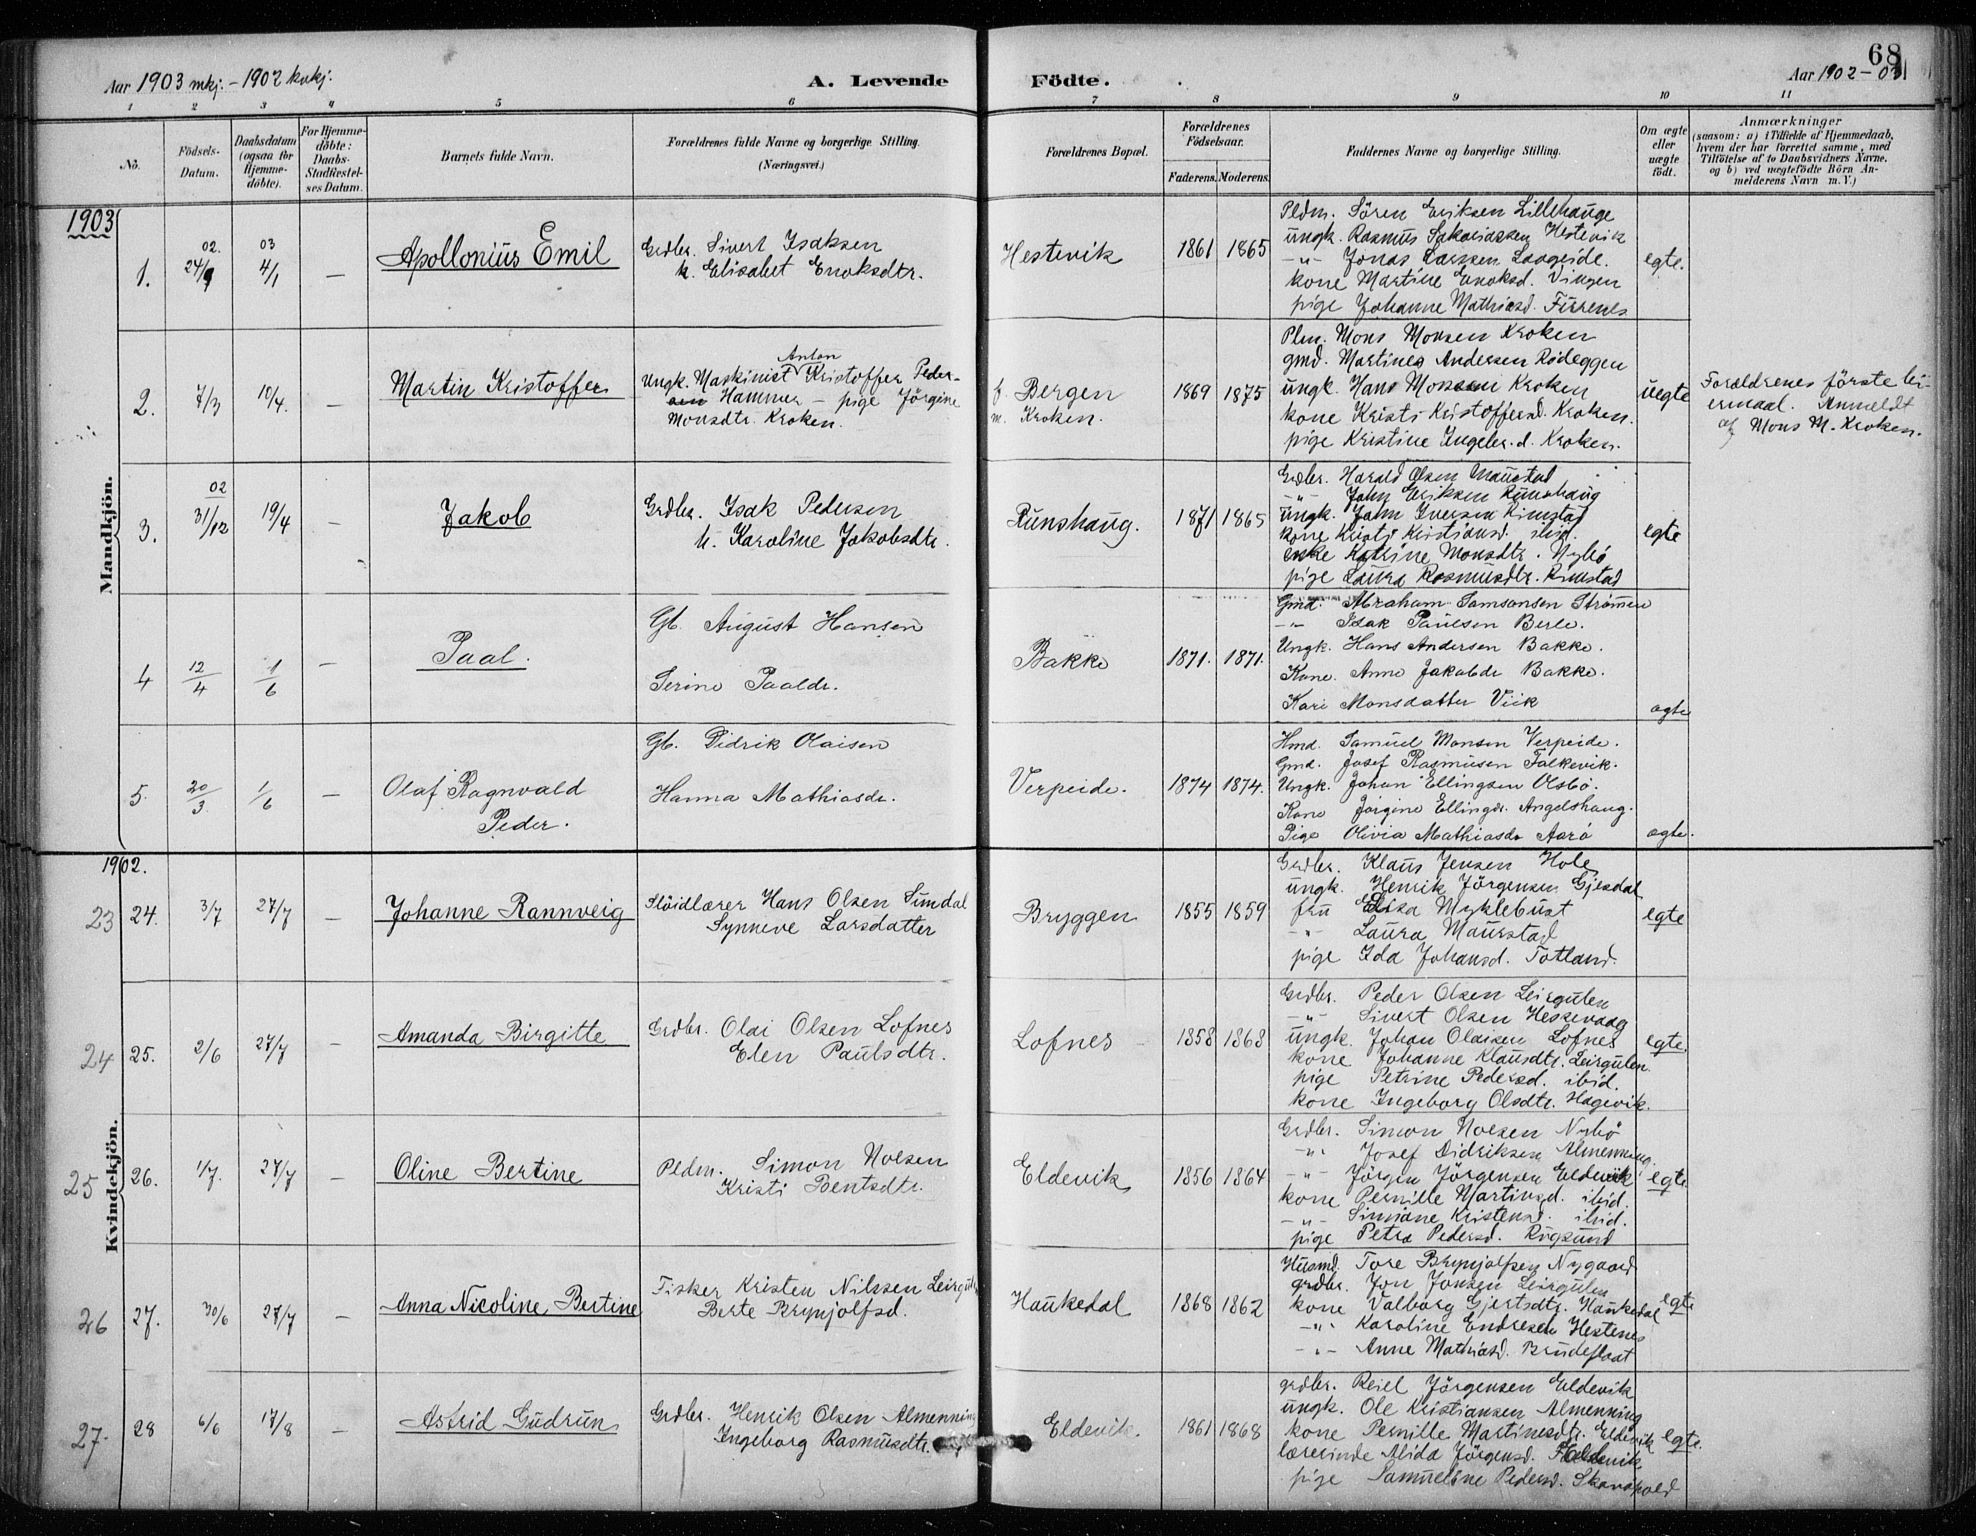 68
Aar 1903 mkj. - 1902 kvkj.
A. Levende Födte.
Aar 1902-03
1 2 3 4 5 6 7 8 9 10 11
No.
Födsels-
Datum.
Daabsdatum
(ogsaa for
Hjemme-
döbte).
For Hjemme-
döbte:
Daabs-
Stadfæstel-
ses Datum.
Barnets fulde Navn.
Forældrenes fulde Navne og borgerlige Stilling.
(Næringsvei.)
Forældrenes Bopæl.
Forældrenes
Födselsaar.
Faderens. Moderens.
Faddernes Navne og borgerlige Stilling.
Om ægte
eller
uægte
födt.
Anmærkninger
(saasom: a) i Tilfælde af Hjemmedaab,
hvem der har forrettet samme, med
Tilföielse af to Daabsvidners Navne,
og b) ved uægtefödte Börn An-
melderens Navn m. V.)
Mandkjön.
1903
1.
02
24/9
03
4/1
—
Apollonius Emil
Grdbr. Sivert Isaksen
h. Elisabet Enoksdtr.
Hestevik
1861 1865
Pldm. Sören Eriksen Lillehauge
ungk. Rasmus Sakariassen Hestevik
-"- Jonas Larssen
kone Martine Enoksd. Vingen
pige Johanne Mathiasd. Furrenes
egte.
2.
7/3
10/4.
Martin Kristoffer
Anton
ungk. Maskinist Kristoffer Peder-
sen Hammer - pige Jörgine
Monsdtr. Kroken.
f. Bergen
m. Kroken.
1869 1875
Plm. Mons Monsen Kroken
gmd. Martines Andersen Rödeggen
ungk. Hans Monsen Kroken
kone Kristi Kristoffersd. Kroken.
pige Kristine Ingebr.d. Kroken.
uegte
Forældrenes förste lei-
ermaal. Anmeldt
af Mons M. Kroken.
3.
02
31/12
19/4
—
Jakob
Grdbr. Isak Pedersen
h. Karoline Jakobsdtr.
Runshaug.
1871 1865
Grdbr. Harald Olsen Maurstad
-"- John Eriksen Runshaug
ungk. John Iversen Rimstad
kone Kristi Kristiansd. ibid.
enke Katrine Monsdtr. Nybö
pige Laura Rasmusdtr. Rimstad
egte
4
12/4
1/6
—
Paal.
Gb. August Hansen
Serine Paaldr.
Bakke
1871. 1871.
Gmd. Abraham Samsonsen Strömmen
-"- Isak Paulsen Berle.
Ungk. Hans Andersen Bakke.
Kone. Anne Jakobdr Bakke.
Kari Monsdatter Viik
ægte
5.
20/3.
1/6
—
Olaf Ragnvald
Peder.
Gb. Didrik Olaisen
Hanna Mathiasdr.
Verpeide.
1874 1874.
Hmd. Samuel Monsen Verpeide.
Gmd. Josef Rasmusen Falkevik.
Ungk. Johan Ellingsen Osbö.
Kone Jörgine Ellingdr. Angelshaug.
Pige Olivia Mathiasdr Aarö
ægte.
Kvindekjön.
1902.
23 24.
3/7
27/7
—
Johanne Rannveig
Slöidlærer Hans Olsen Sundal
Synneve Larsdatter
Bryggen
1855 1859
Grdbr. Klaus Jensen Hole
ungk. Henrik Jörgensen Gjesdal
fru Elisa Myklebust
-"- Laura Maurstad
pige Ida Johansd. Totland.
egte
24 25.
2/6
27/7
—
Amanda Birgitte
Grdbr. Olai Olsen Lofnes
Elen Paulsdtr.
Lofnes
1858 1863
Grdbr. Peder Olsen Leirgulen
-"- Sivert Olsen Hessevaag
ungk. Johan Olaisen Lofnes
kone Johanne Klausdtr. Leirgulen
pige Petrine Pedersd. ibid.
kone Ingeborg Olsdtr. Hagevik.
egte.
25 26.
1/7.
27/7
—
Oline Bertine
Pldm. Simon Moesen
Kristi Bentsdtr.
Eldevik
1856 1864
Grdbr. Simon Moesen Nybö
-"- Josef Didriksen Almenning.
-"- Jörgen Jörgensen Eldevik
kone Pernille Martinsd. ibid.
-"- Simiane Kristensd. ibid.
pige Petra Pedersd. Rugsund
egte
26 27.
30/6
27/7
—
Anna Nicoline Bertine
Fisker Kristen Nilssen Leirgulen
Berte Brynjolfsd.
Haukedal
1868 1862
Husmd. Tore Brynjolfsen Nygaard
grdbr. Jon Jonsen Leirgulen
kone Valborg Gjertsdtr. Haukedal
-"- Karoline Endresen Hestenes
-"- Anne Mathiasd. Brudeflaat
egte
27. 28
6/6
17/8
—
Astrid Gudrun
Grdbr. Henrik Olsen Almenning
Ingeborg Rasmusdtr.
Eldevik.
1861 1868
grdbr. Reiel Jörgensen Eldevik
ungk. Ole Kristiansen Almenning
kone Pernille Martinesdtr. Eldevik
lærerinde Alida Jörgensd. Eldevik
pige Samueline Pedersd.
egte.